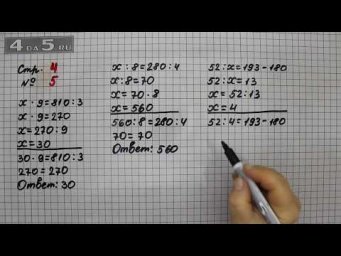 4 DA 5.RU
Стр. 4
№ 5
х · 9 = 810 : 3
х · 9 = 270
х = 270 : 9
х = 30
30 · 9 = 810 : 3
270 = 270
Ответ: 30
х : 8 = 280 : 4
х : 8 = 70
х = 70 · 8
х = 560
560 : 8 = 280 : 4
70 = 70
Ответ: 560
52 : х = 193 - 180
52 : х = 13
х = 52 : 13
х = 4
52 : 4 = 193 - 180